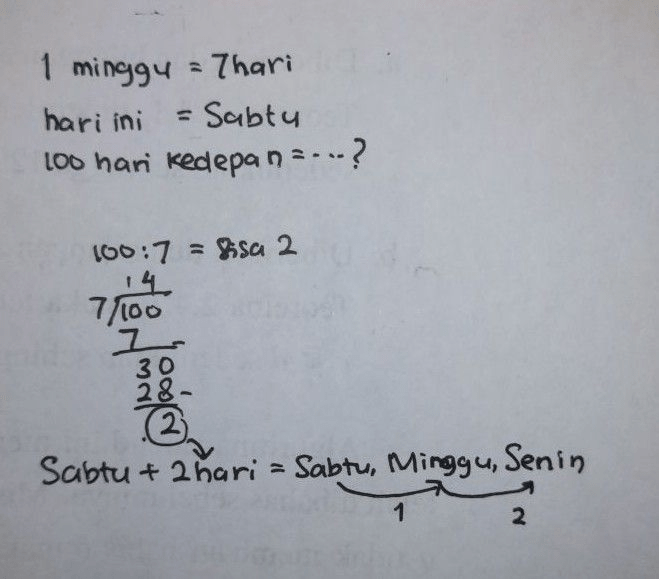 1 minggu = 7hari
hari ini = Sabtu
100 hari kedepan = ...?
100 : 7 = sisa 2
14
7/100
7 -
30
28 -
2
Sabtu + 2hari = Sabtu, Minggu, Senin
1 2